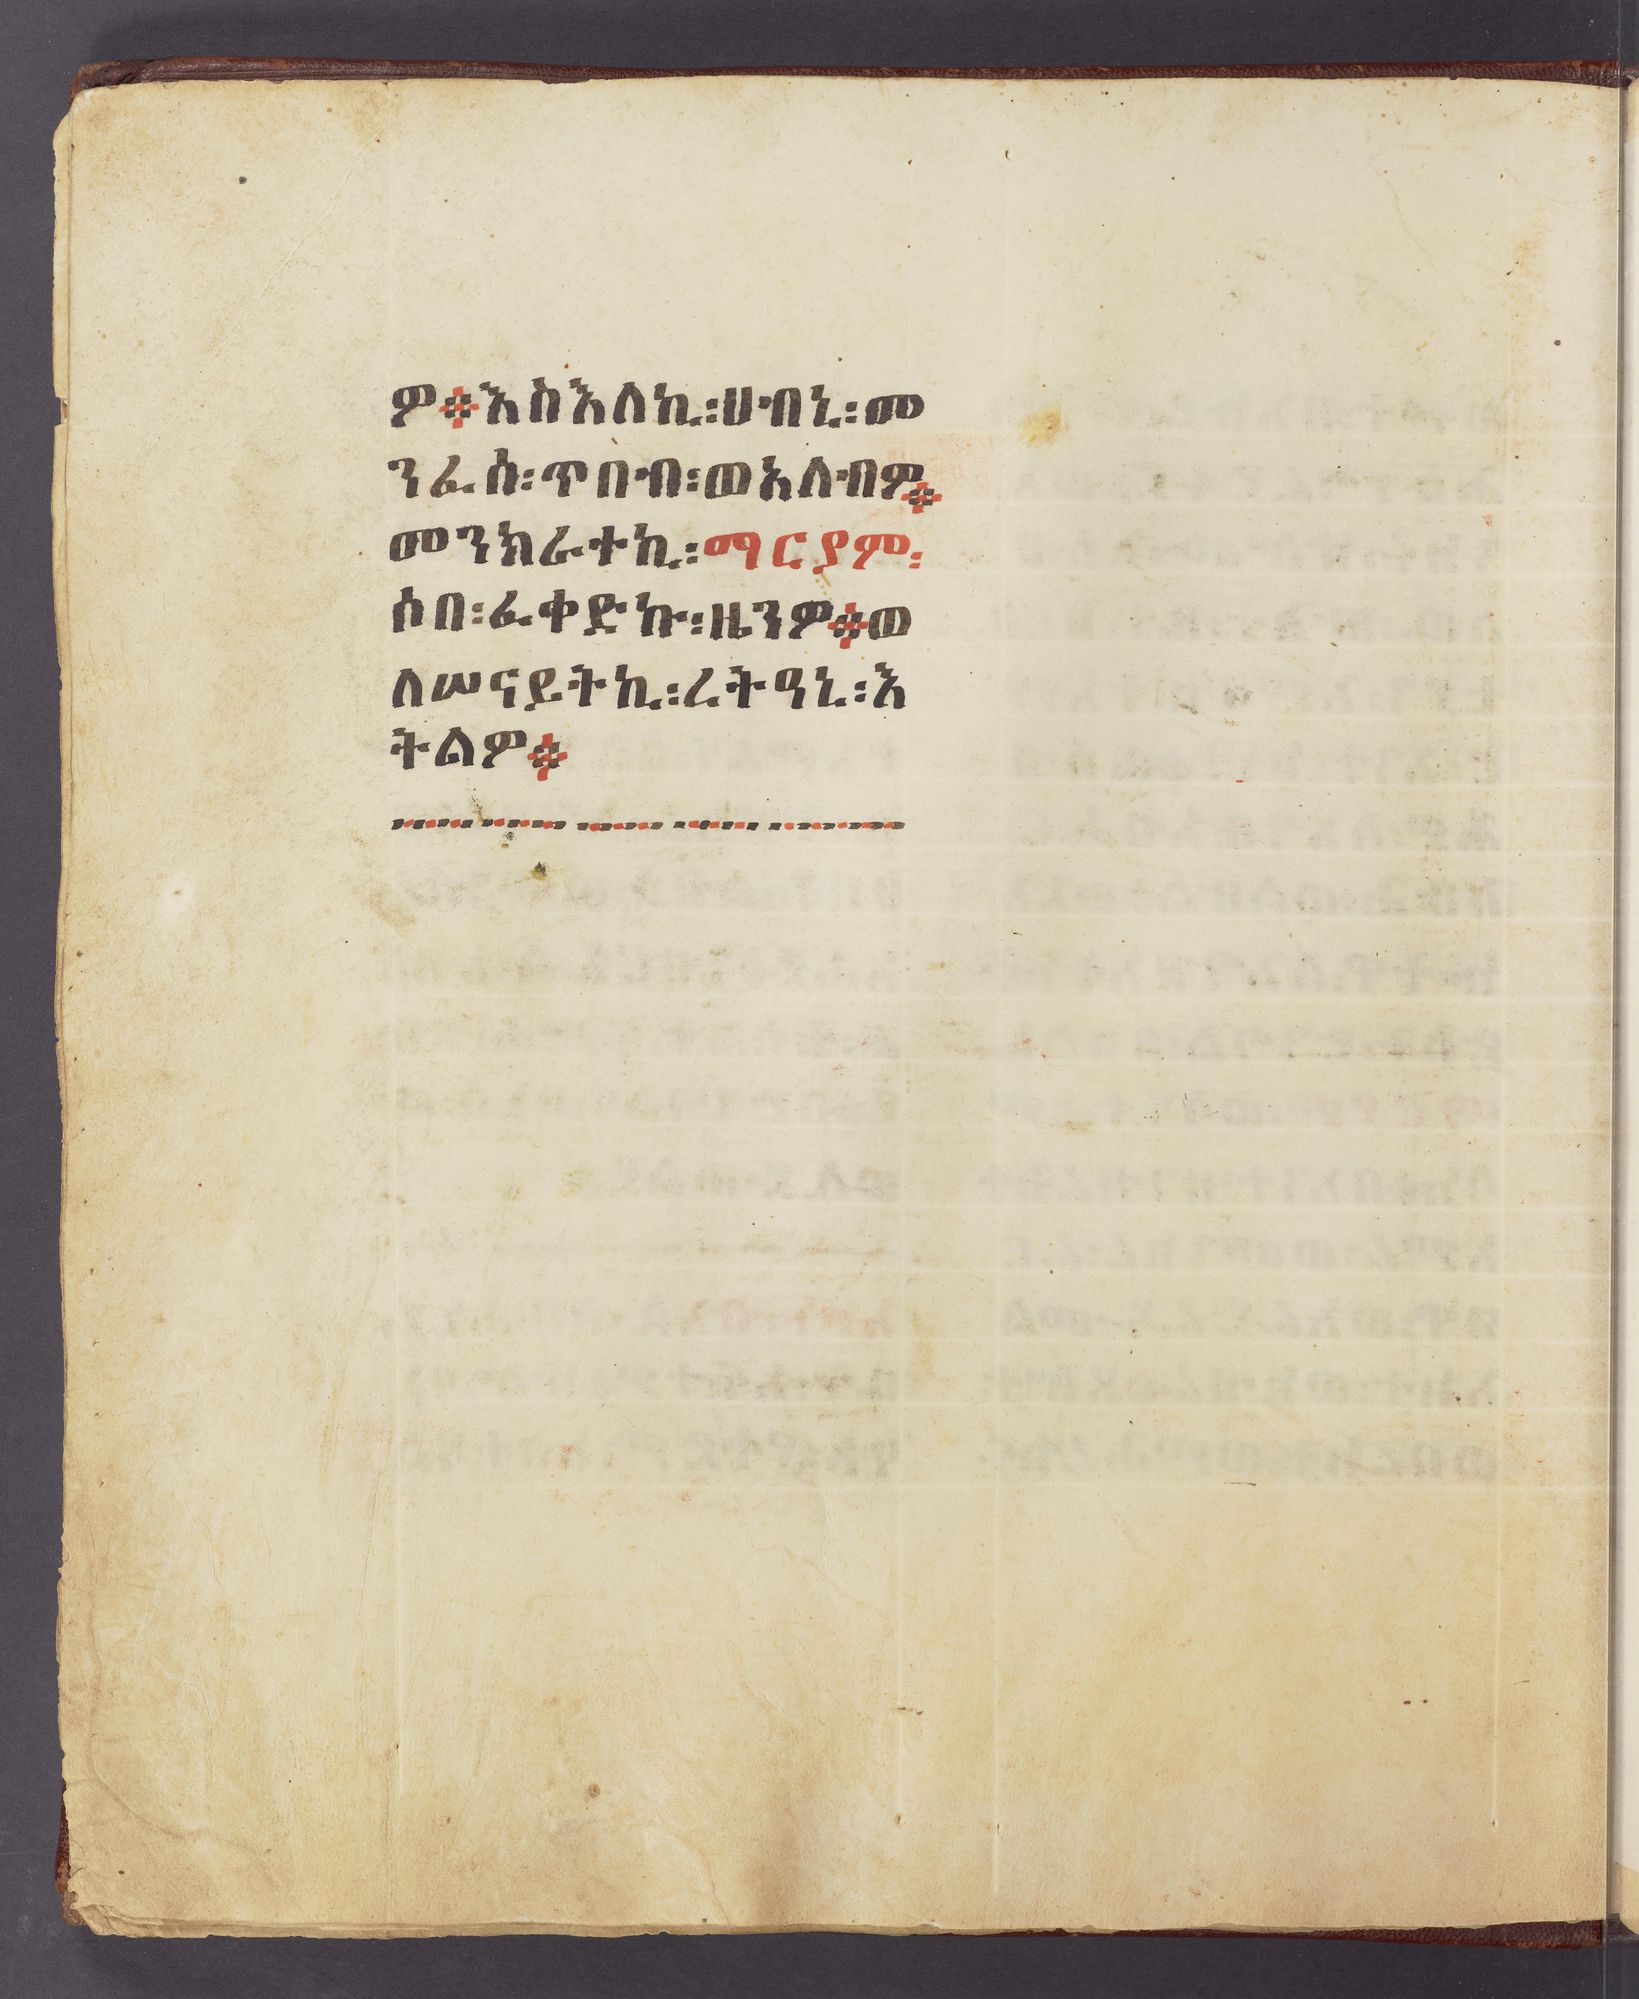 ሞ፨እስእለኪ፡ሀብኒ፡መ
ንፈሰ፡ጥበብ፡ወአለብሞ፨
መንክራተኪ፡ማርያም፡
ሶበ፡ፈቀድኩ፡ዜንዎ፨ወ
ለሠናይትኪ፡ረትዓኒ፡እ
ትልዎ፨